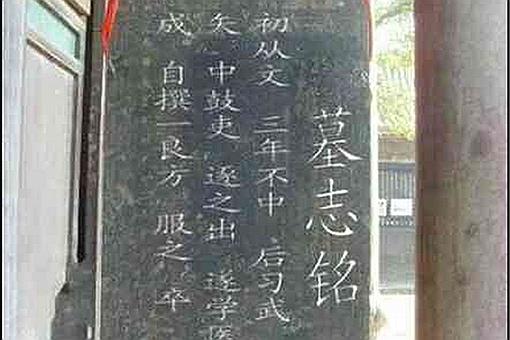 墓志铭
初从文 三年不中 后习武
矢 中鼓吏 逐之出 遂学医
成 自撰一良方 服之 卒